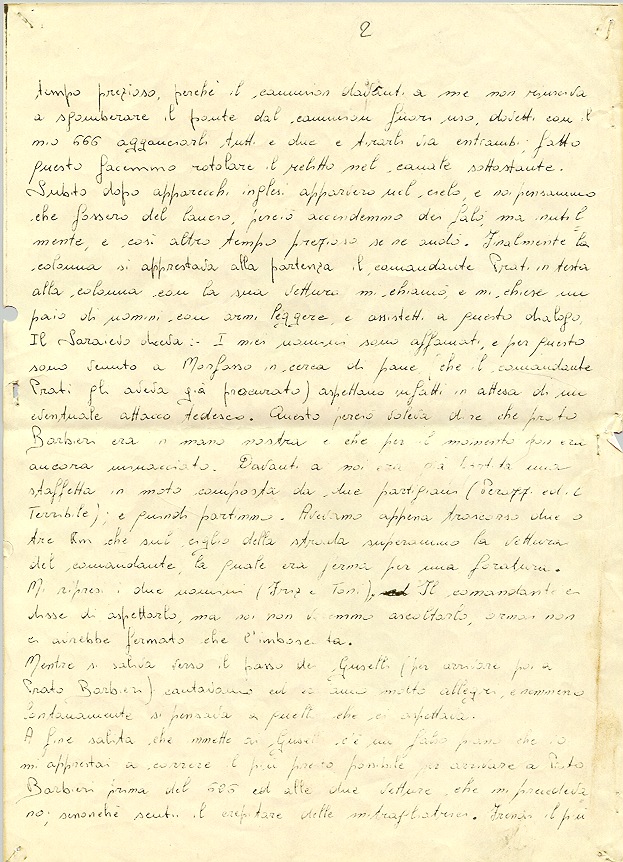 2
tempo prezioso, perchè il camion davanti a me non riusciva
a sgomberare il ponte dal camion fuori uso, dovetti con il
mio 666 agganciarli tutti e due e tirarli via entrambi; fatto
questo facemmo rotolare il relitto nel canale sottostante.
Subito dopo apparecchi inglesi apparvero nel cielo, e noi pensammo
che fossero del lancio, perciò accendemmo dei falò ma inutil
mente, e così altro tempo prezioso se ne andò. Finalmente la
colonna si apprestava alla partenza il comandante Prati in testa
alla colonna con la sua vettura mi chiamò, e mi chiese un
paio di uomini con armi leggere, e assistetti a questo dialogo,
Il Saraievo diceva:- I miei uomini sono affamati, e per questo
sono venuto a Morfasso in cerca di pane (che il comandante
Prati gli aveva già procurato) aspettano infatti in attesa di un
eventuale attacco tedesco. Questo perciò voleva dire che prato
Barbieri era in mano nostra e che per il momento non era
ancora minacciato. Davanti a noi era già partita una
staffetta in moto composta da due partigiani ( ed il
Terribile); e quindi partimmo. Avevamo appena trascorso due o
tre Km che sul ciglio della strada superammo la vettura
del comandante, la quale era ferma per una foratura.
Mi ripresi i due uomini (Friz e Toni). Il comandante ci
disse di aspettarlo, ma noi non vi ascoltarlo, ormai non
ci avrebbe fermato che l'imboscata.
Mentre si saliva verso il passo dei Guselli (per arrivare poi a
Prato Barbieri) cantavamo ed eravamo molto allegri, e nemmeno
lontanamente si pensava a quello che ci aspettava.
A fine salita che immette ai Guselli c'è un falso piano che io
mi apprestai a correre il più presto possibile per arrivare a Prato
Barbieri prima del 666 ed alle due vetture che mi precedeva
no; sinonchè sentii il crepitare delle mitragliatrici. Frenai il più